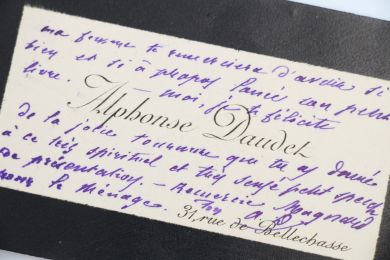 ma femme te remerciera d'avoir si
bien et si à propos lancé son petit
livre. — moi, je te félicite
Alphonse Daudet
de la jolie tournure que tu as donné
à ce très spirituel et très sensé petit speech
de présentation. — Remercie Magnard
pour le ménage. Ton A. D.
31, rue de Bellechasse